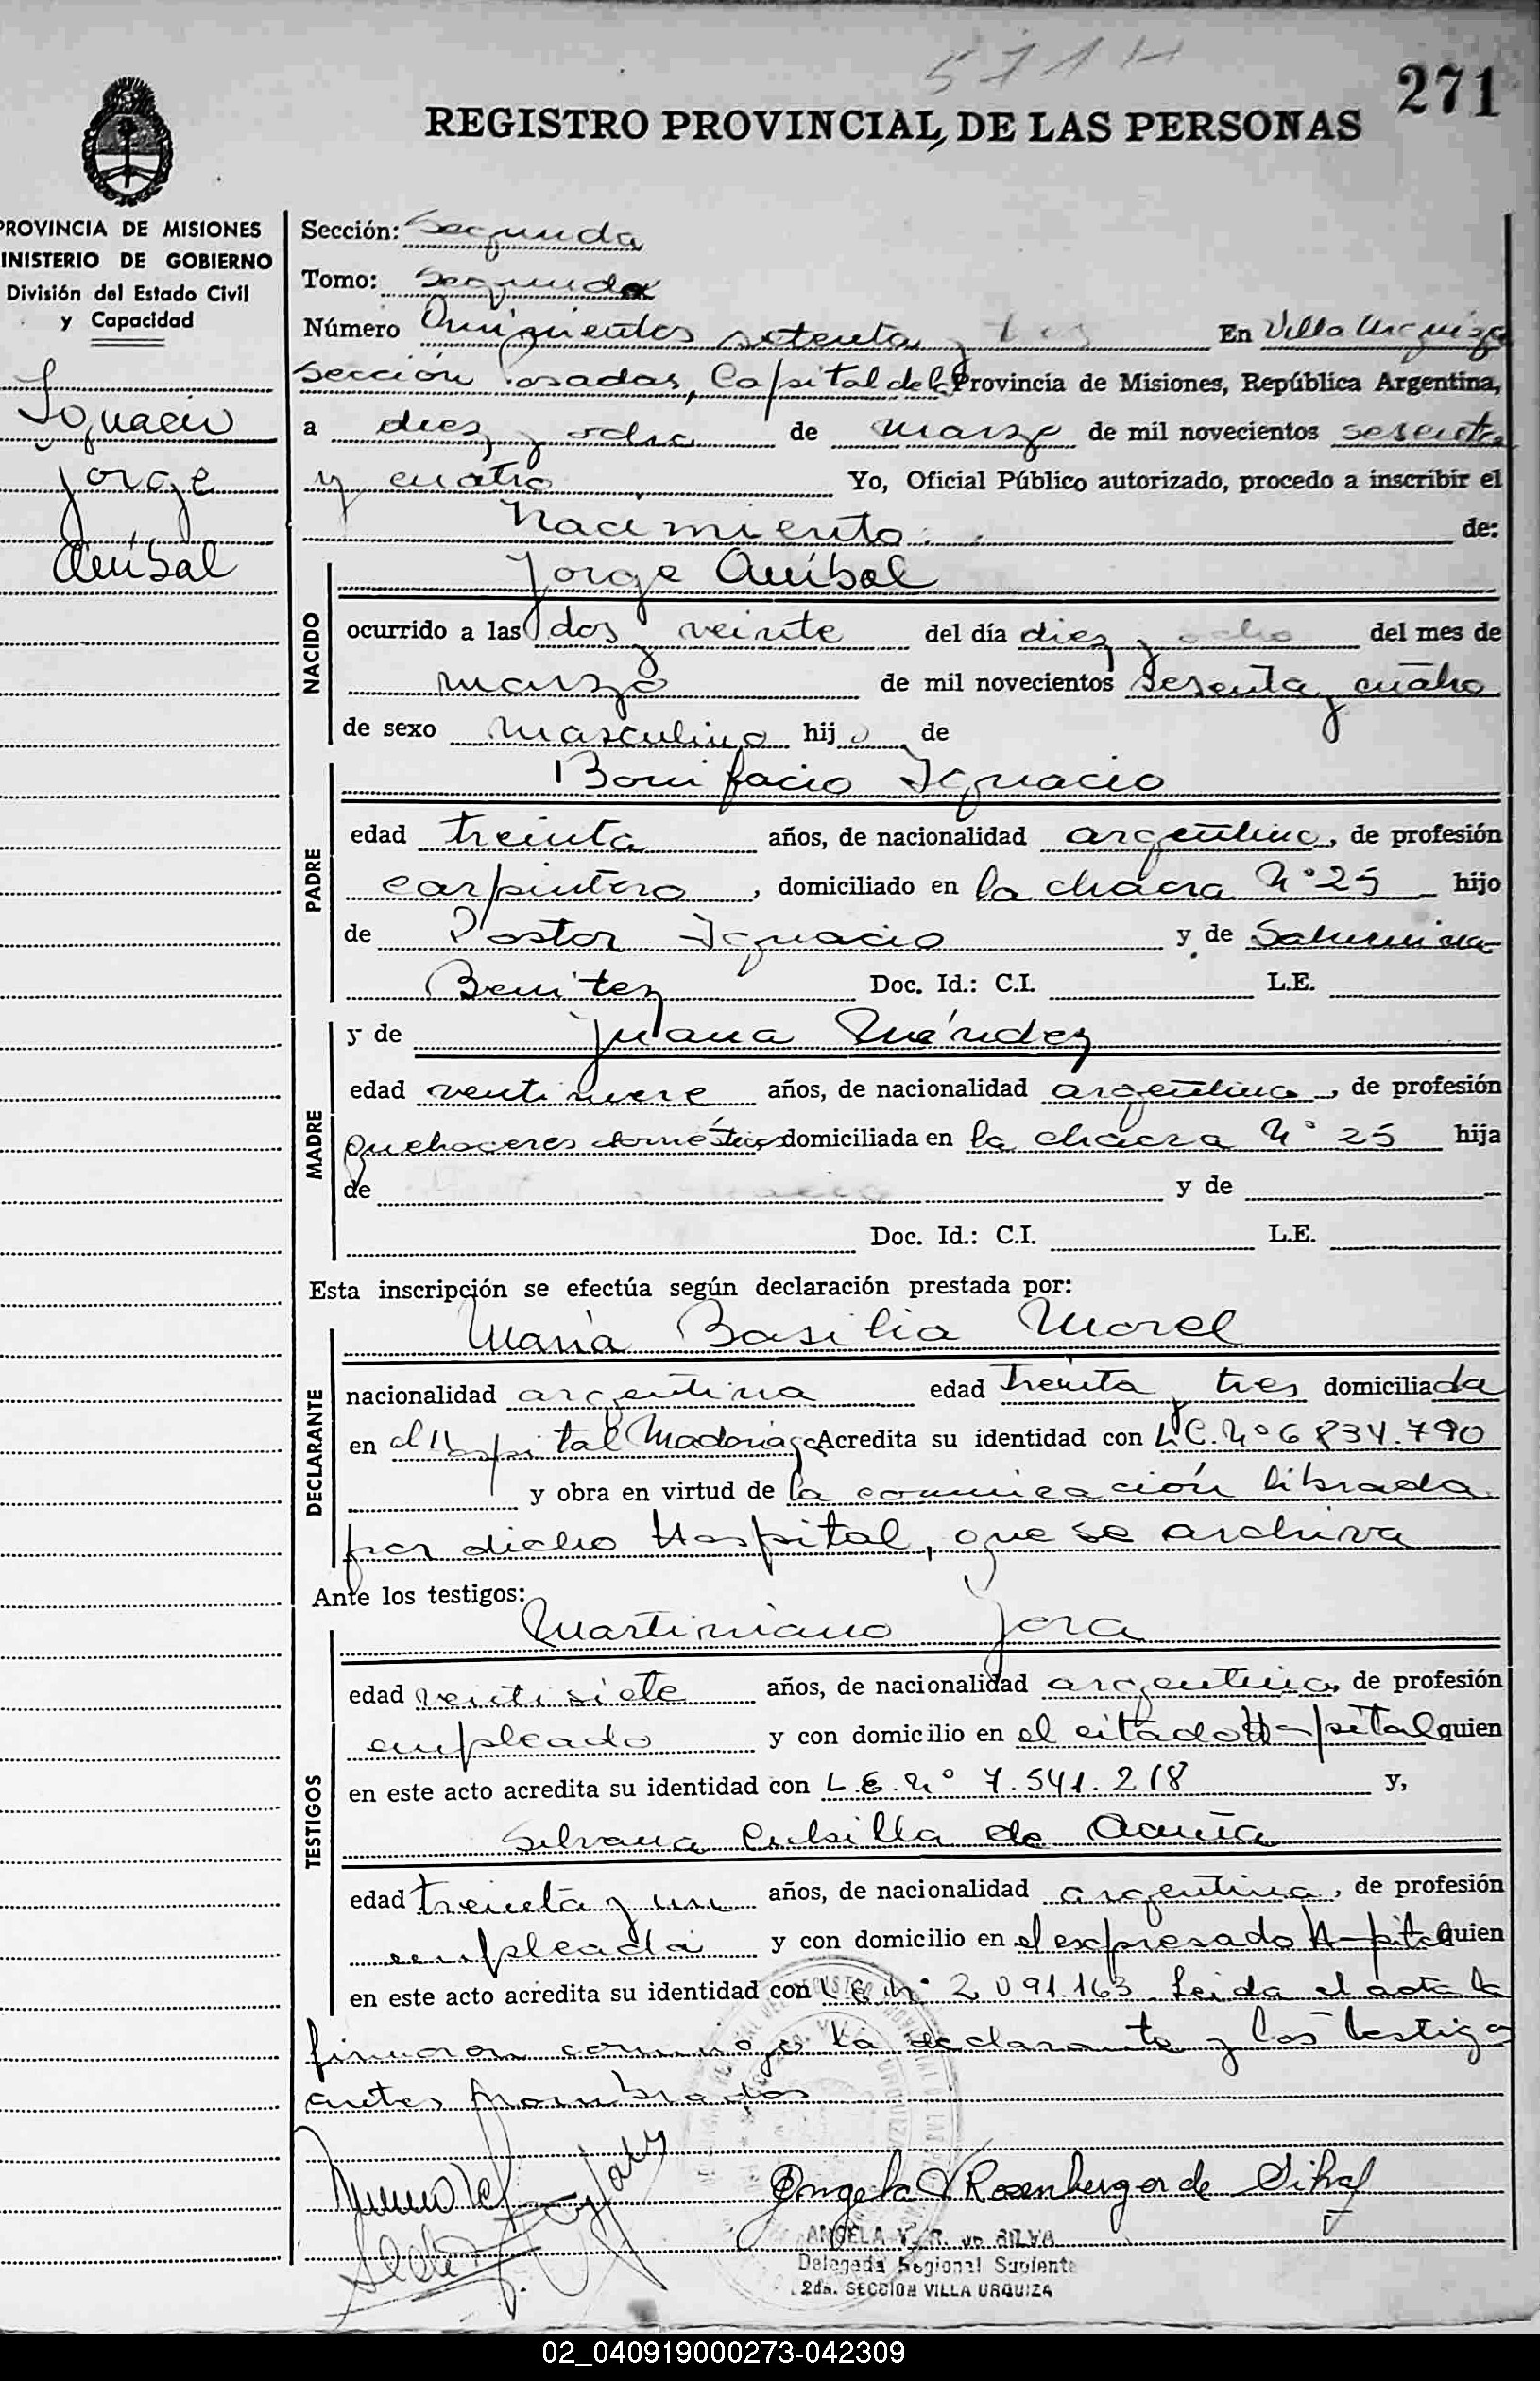 271
REGISTRO PROVINCIAL DE LAS PERSONAS
PROVINCIA DE MISIONES
INISTERIO DE GOBIERNO
División del Estado Civil
y Capacidad
Ignacio
Jorge
Aníbal
Sección: Segunda
Tomo: Segundo
Número Quinientos setenta y En Villa Urquiza
Sección Posadas, Capital de la Provincia de Misiones, República Argentina,
a diez y ocho de marzo de mil novecientos sesenta
y cuatro Yo, Oficial Público autorizado, procedo a inscribir el
nacimiento de:
NACIDO
Jorge Aníbal
ocurrido a las dos y veinte del día diez y ocho del mes de
marzo de mil novecientos sesenta y cuatro
de sexo masculino hijo de
PADRE
Bonifacio Ignacio
edad treinta años, de nacionalidad argentino, de profesión
carpintero, domiciliado en la chacra Nº 25 hijo
de Pastor Ignacio y de Saturnina
Benitez Doc. Id.: C.I. L.E.
MADRE
y de Juana Méndez
edad ventinueve años, de nacionalidad argentina, de profesión
quehaceres domésticos domiciliada en la chacra Nº 25 hija
de y de
Doc. Id.: C.I. L.E.
Esta inscripción se efectúa según declaración prestada por:
DECLARANTE
María Basilia Morel
nacionalidad argentina edad treinta y tres domiciliada
en el Hospital Madariaga Acredita su identidad con L.C. Nº 6834.790
y obra en virtud de la comunicación librada
por dicho Hospital, que se archiva
Ante los testigos:
TESTIGOS
Martiniano Jara
edad veintisiete años, de nacionalidad argentina, de profesión
empleado y con domicilio en el citado Hospital quien
en este acto acredita su identidad con L.E. Nº 7.541.218 y,
Silvana Cubilla de Acuña
edad treinta y un años, de nacionalidad argentina, de profesión
empleada y con domicilio en el expresado Hospital quien
en este acto acredita su identidad con Nº 2091.163. Leida el acta la
firmaron conmigo la declarante y los testigos
antes nombrados
Angela V Rosenberger de Silva
ANGELA V. R. de SILVA
Delegada Regional Suplente
2da. SECCION VILLA URQUIZA
02_040919000273-042309